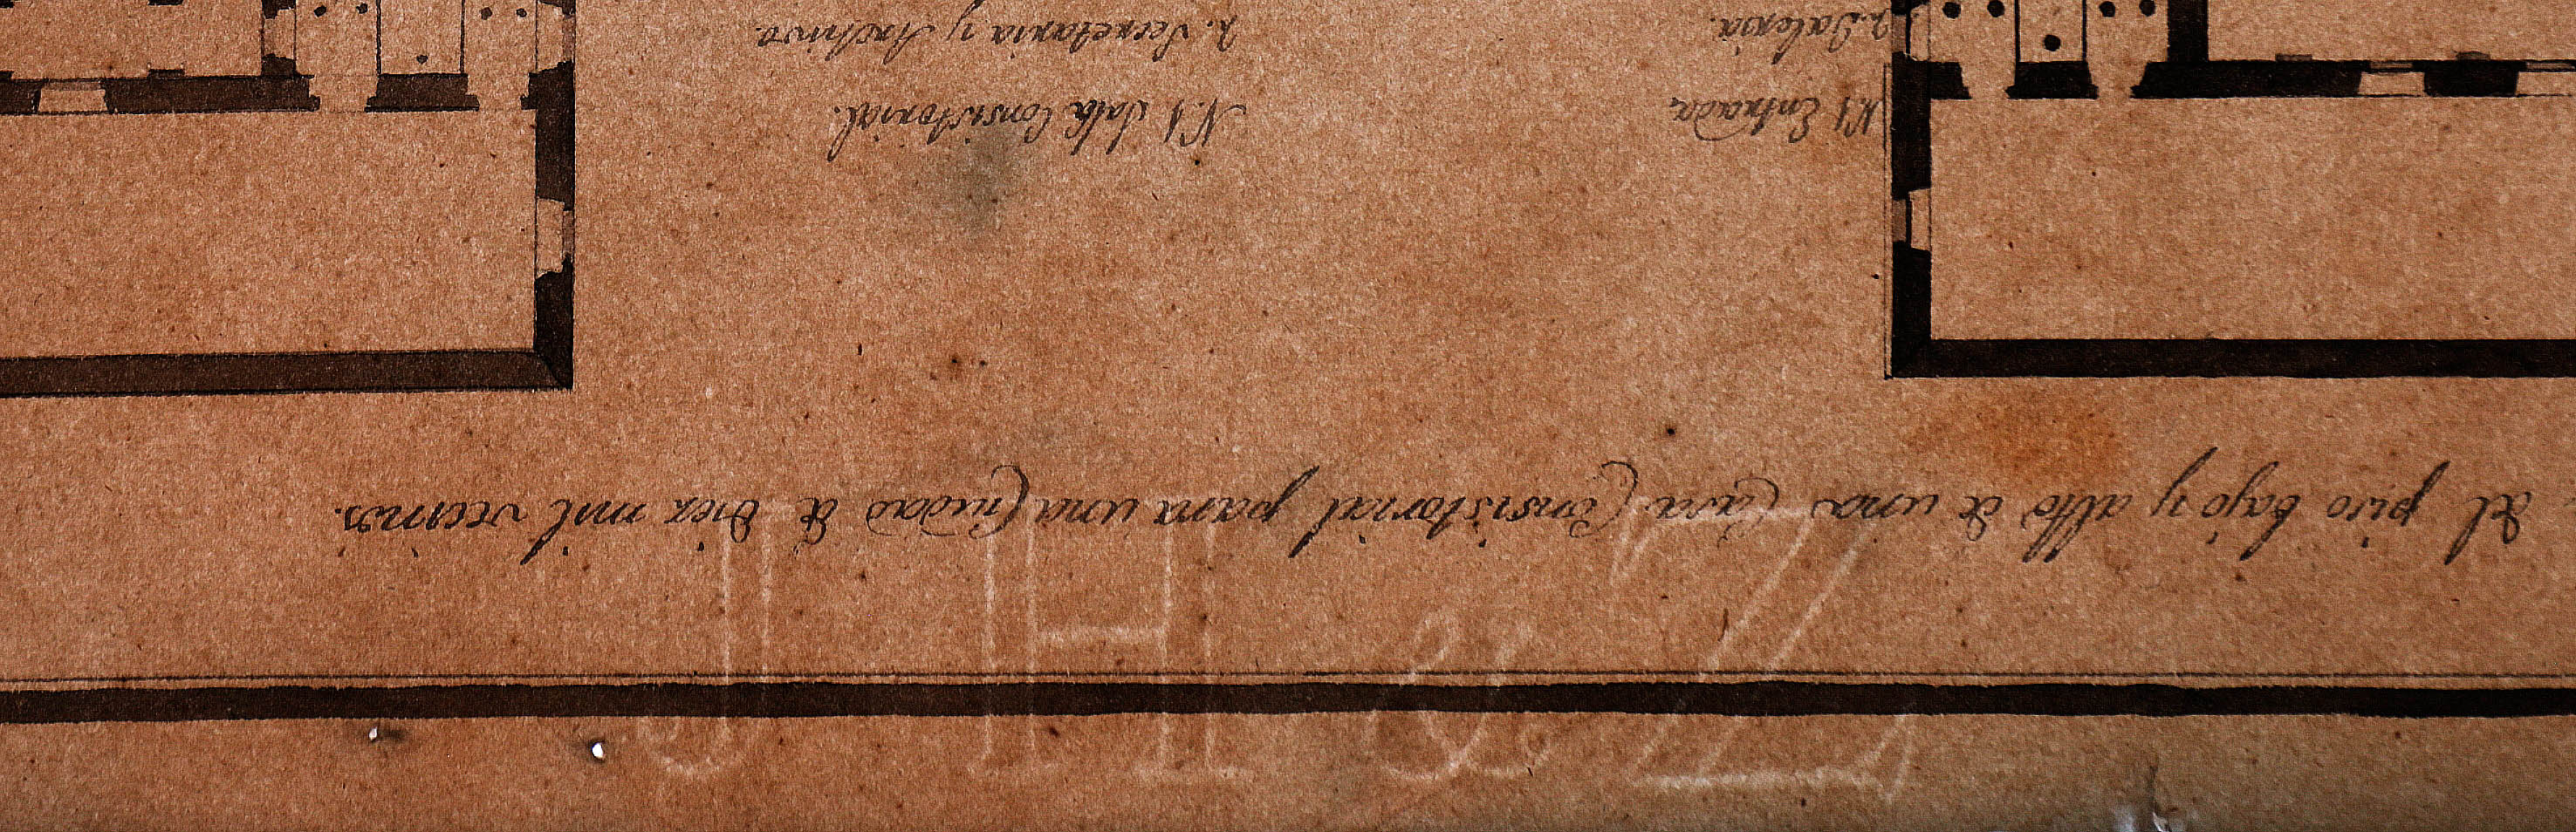 del piso bajo y alto de una Casa Consistorial para una Ciudad de diez mil vecinos.
N.1 Entrada
2. Galeria.
N.1 Sala Consistorial.
2. Secretaria y Archivo.
J H & Z